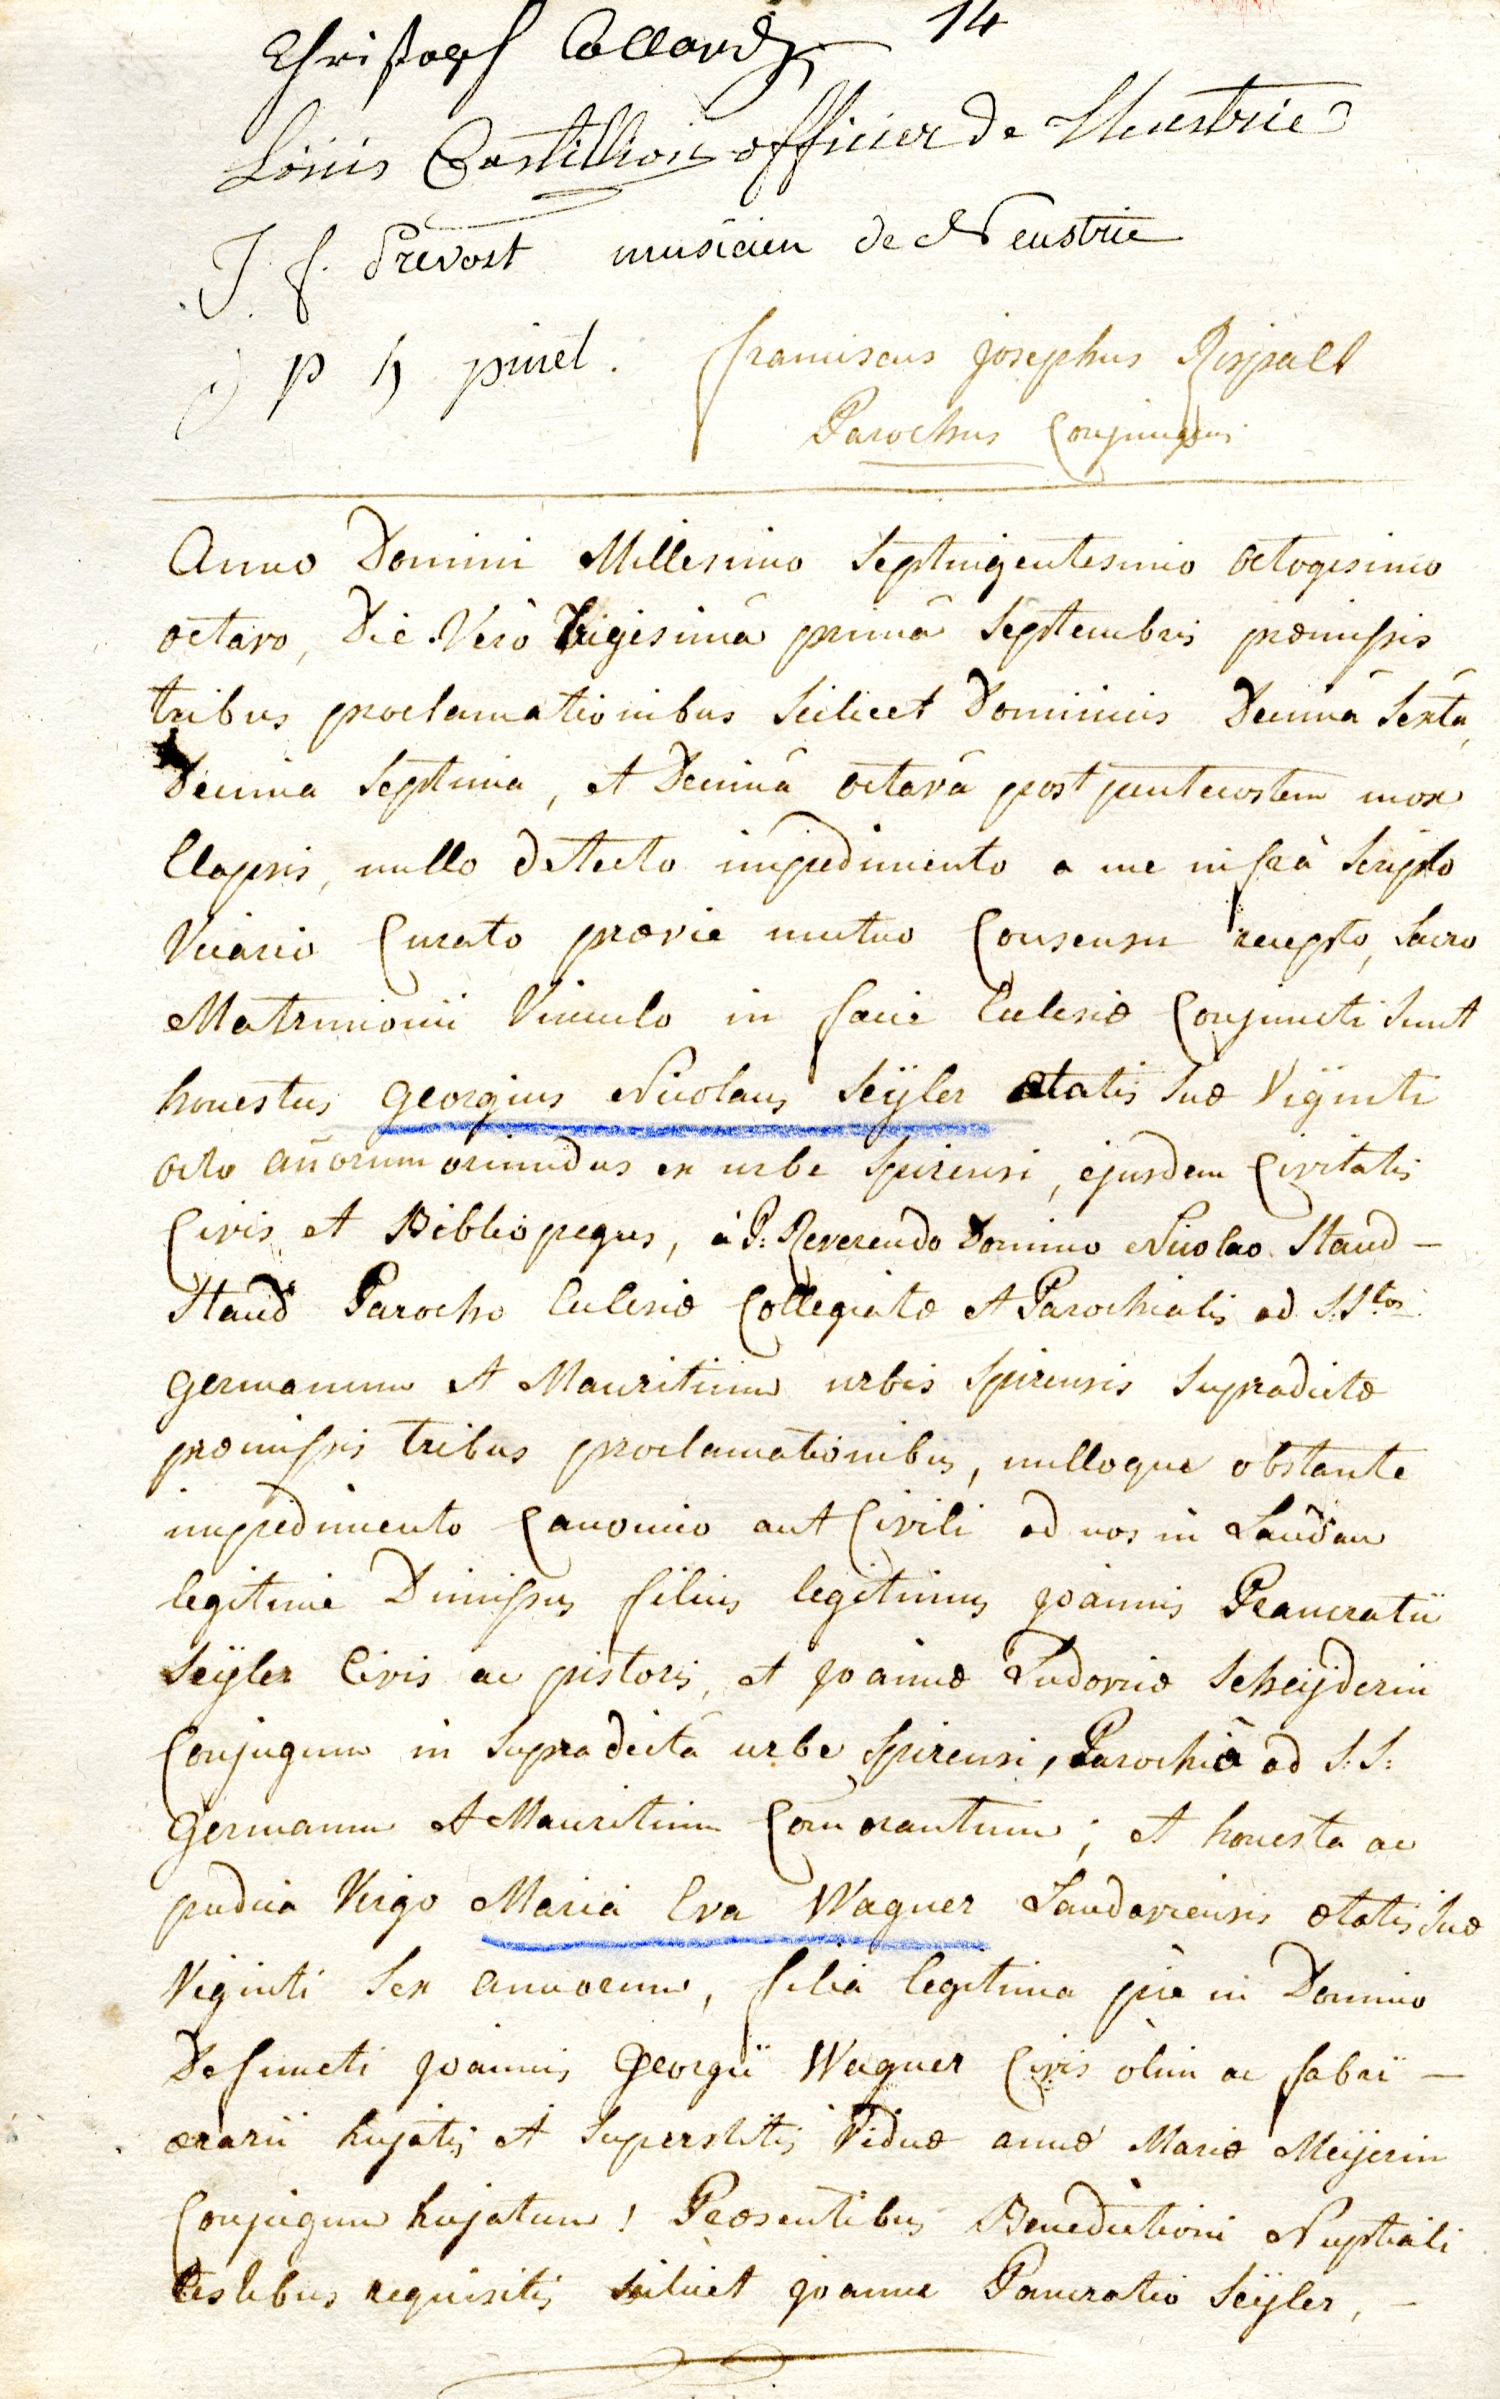 Christoph Collard 14
Louis Castillion officier de Neustrie
J. f. Prevost musicien de Neustrie
j p h pinel. franciscus josephus Rispalt
Parochus Conjungens
Anno Domini Millesimo Septingentesimo octogesimo
octavo, Die Verò Vigesimâ primâ Septembris præmissis
tribus proclamationibus Scilicet Dominicis Decimâ Sextâ,
Decima Septima, et Decimâ octavâ post pentecostem mox
Elapsis, nullo detecto impedimento a me infrà Scripto
Vicario Curato prævie mutuo Consensu recepto, Sacro
Matrimonii Vinculo in facie Ecclesiæ Conjuncti Sunt
honestus georgius Nicolaus Seÿler ætatis Suæ Viginti
octo añorum oriundus ex urbe Spirensi, ejusdem Civitatis
Civis et Bibliopegus, à P: Reverendo Domino Nicolao Staud-
Staud Parocho Ecclesiæ Collegiatæ et Parochialis ad S:Stos
germanum et Mauritium urbis Spirensis Supradictæ
præmissis tribus proclamationibus, nulloque obstante
impedimento Canonico aut Civili ad nos in Landau
legitime Dimissus filius legitimus joannis Pancratii
Seÿler Civis ac pistoris, et joannæ Ludovicæ Scheijderin
Conjugum in Supradictâ urbe Spirensi, Parochiâ ad S: S:
germanum et Mauritium Com̄orantium; et honesta ac
pudica Virgo Maria Eva Wagner Landaviensis ætatis Suæ
Viginti Sex annorum, filia legitima piè in Domino
Defuncti joannis georgii Wagner Civis olim ac fabri -
ærarii hujatis et Superstitis Viduæ annæ Mariæ Meÿerin
Conjugum hujatum! Præsentibus Benedictioni Nuptiali
testibus requisitis scilicet joanne Pancratio Seÿler, -